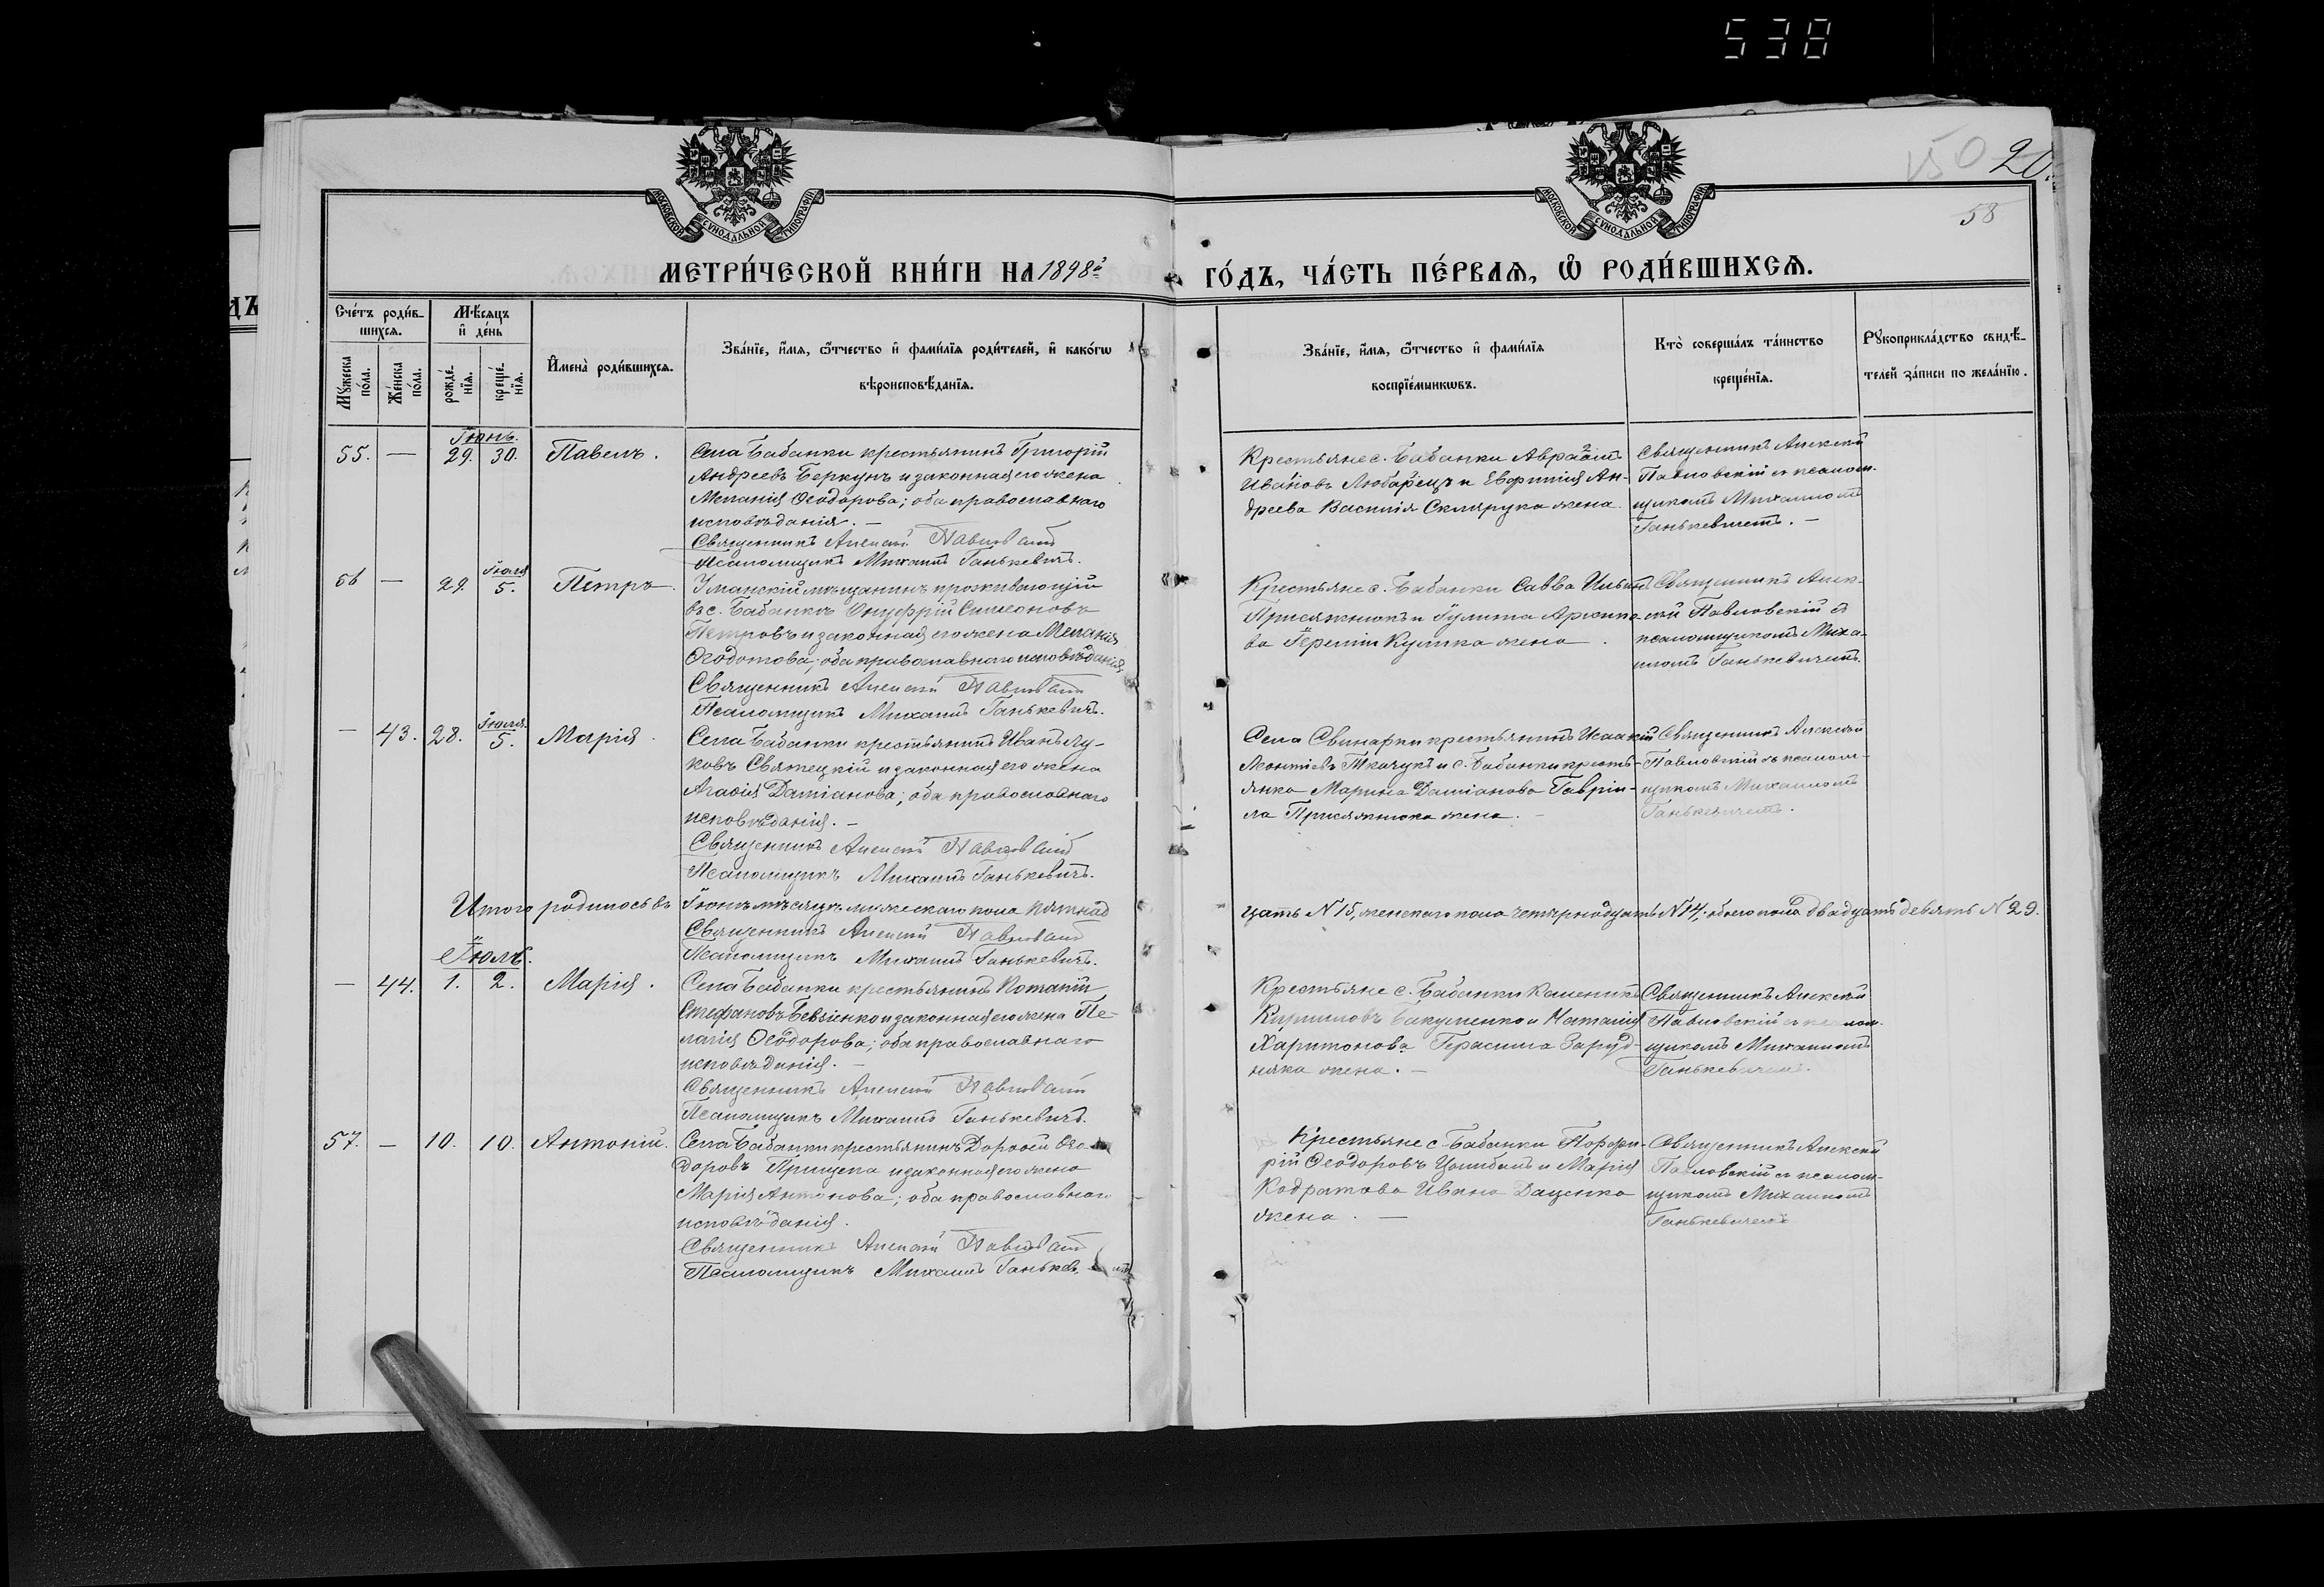 538
МОСКОВСКОЙ СѴНОДАЛЬНОЙ ТИПОГРАФІИ
МОСКОВСКОЙ СѴНОДАЛЬНОЙ ТИПОГРАФІИ
150 20.
58
МЕТРИ́ЧЕСКОЙ КНИ́ГИ НА 1898й ГО́ДЪ, ЧА́СТЬ ПЕ́РВАЯ, Ѡ҆ РОДИ́ВШИХСѦ.
Сче́тъ роди́в-
шихсѧ.
Мꙋ́жеска по́ла.
Же́нска по́ла.
Мѣ́сѧцъ
и҆ де́нь
рожде́-нїѧ.
креще́-нїѧ.
И҆мена̀ роди́вшихсѧ.
Зва́нїе, и҆́мѧ, ѻ҆́тчество и҆ фами́лїѧ роди́телей, и҆ како́гѡ
вѣроисповѣ́данїѧ.
Зва́нїе, и҆́мѧ, ѻ҆́тчество и҆ фами́лїѧ
воспрїе́мникѡвъ.
Кто̀ соверша́лъ та́инство
креще́нїѧ.
Рꙋкоприкла́дство свидѣ́-
телей за́писи по жела́нїю.
Іюнь.
55. — 29. 30. Павелъ.
Села Бабанки крестьянинъ Григорій
Андреевъ Беркунъ и законная его жена
Меланія Ѳеодорова; оба православнаго
исповѣданія. —
Священникъ Алексій Павловскій
Псаломщикъ Михаилъ Ганькевичъ.
Крестьяне с. Бабанки Авраамъ
Ивановъ Любарецъ и Евфимія Ан-
дреева Василія Склярука жена.
Священникъ Алексій
Павловскій съ псалом-
щикомъ Михаиломъ
Ганькевичемъ. —
Іюля
56 — 29. 5. Петръ.
Уманскій мѣщанинъ проживающій
въ с. Бабанкѣ Онуфрій Симеоновъ
Петровъ и законная его жена Меланія
Ѳеодотова; оба православнаго исповѣданія
Священникъ Алексій Павловскій
Псаломщикъ Михаилъ Ганькевичъ.
Крестьяне с. Бабанки Савва Ильинъ
Присяжнюкъ и Гулита Архипо-
ва Іереміи Кулика жена.
Священникъ Алек-
сій Павловскій съ
псаломщикомъ Миха-
иломъ Ганькевичемъ.
Іюля.
— 43. 28. 5. Марія.
Села Бабанки крестьянинъ Иванъ Лу-
ковъ Святецкій и законная его жена
Агаѳія Даміанова; оба православнаго
исповѣданія. —
Священникъ Алексій Павловскій
Псаломщикъ Михаилъ Ганькевичъ.
Села Свинарки крестьянинъ Исаакій
Леонтіевъ Ткачукъ и с. Бабанки кресть-
янка Марина Даміанова Гавріи-
ла Присяжнюка жена. —
Священникъ Алексій
Павловскій съ псалом-
щикомъ Михаиломъ
Ганькевичемъ.
Итого родилось въ Іюнѣ мѣсяцѣ мужескаго пола пятнад
цать N 15, женскаго пола четырнадцать N 14, обоего пола двадцать девять N 29.
Священникъ Алексій Павловскій
Псаломщикъ Михаилъ Ганькевичъ.
Іюль.
— 44. 1. 2. Марія.
Села Бабанки крестьянинъ Потапій
Стефановъ Бевзенко и законная его жена Пе-
лагія Ѳеодорова; оба православнаго
исповѣданія. —
Священникъ Алексій Павловскій
Псаломщикъ Михаилъ Ганькевичъ.
Крестьяне с. Бабанки Калиникъ
Кирилловъ Бакуменко и Наталія
Харитонова Герасима Заруд-
няка жена. —
Священникъ Алексій
Павловскій съ псалом-
щикомъ Михаиломъ
Ганькевичемъ.
57. — 10. 10. Антоній.
Села Бабанки крестьянинъ Дороѳей Ѳео-
доровъ Прищепа и законная его жена
Марія Антонова; оба православнаго
исповѣданія.
Священникъ Алексій Павловскій
Псаломщикъ Михаилъ Ганькевичъ
Крестьяне с. Бабанки Порфи-
рій Ѳеодоровъ Цимбалъ и Марія
Кодратова Ивана Даценка
жена. —
Священникъ Алексій
Павловскій съ псалом-
щикомъ Михаиломъ
Ганькевичемъ